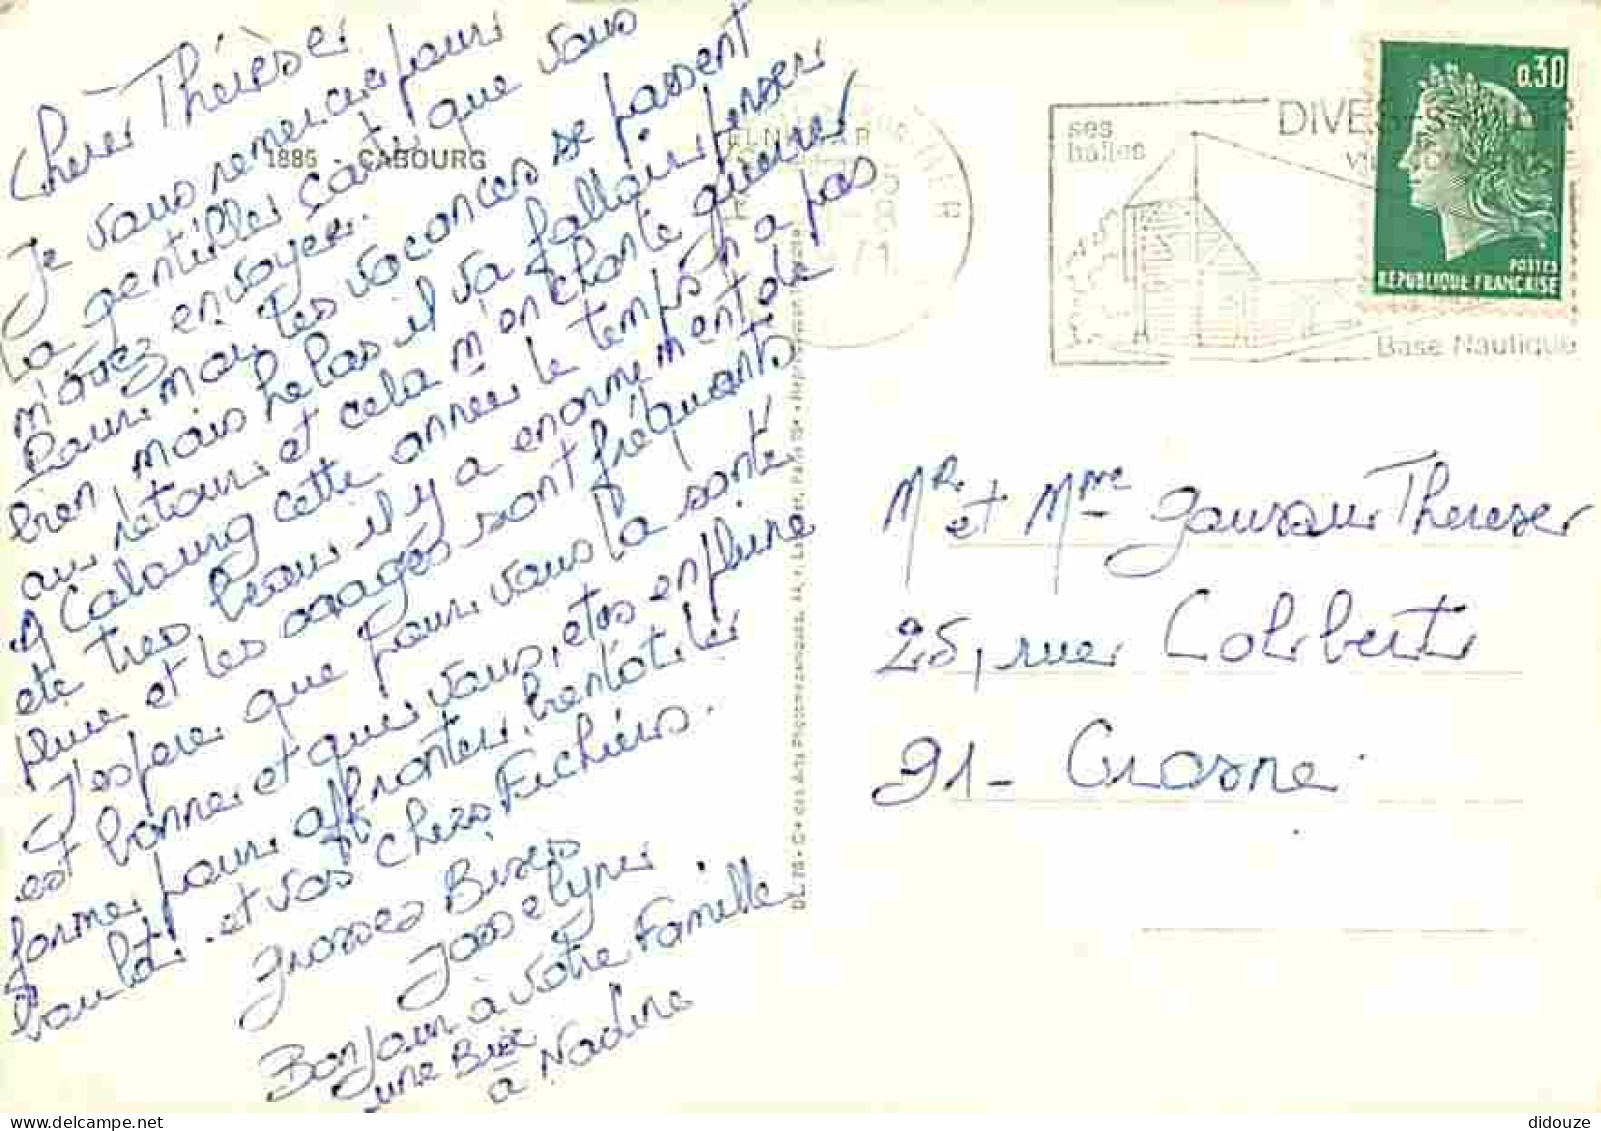 Chere Thérèse
Je vous remercie pour
la gentilles carte que vous
m'avez envoyer.
Pour moi les vacances se passent
bien, mais helas il va falloir penser
au retour et cela m'enchante guerre
A Cabourg cette année le temps n'a pas
ete tres beau il y a enormement de
pluie et les orages sont fréquants
J'espere que pour vous la santé
est bonne et que vous, etes en pleine
forme pour affronter bientot le
boulot. et vos chers Fichiers.
Grosses Bises
Josselyne
Bonjour à votre Famille
une Bise
à Nadine
1885 - CABOURG
SUR-MER
15
-8
71
ses
halles
DIVES-S-MER
Base Nautique
0,30
POSTES
REPUBLIQUE FRANÇAISE
Mr et Mme Thereser
25, rue Colbert
91 - Crosne
didouze